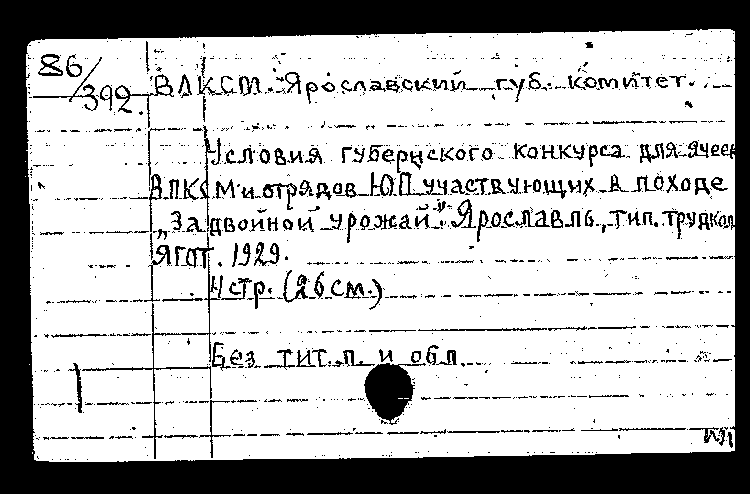 86/392.
ВЛКСМ. Ярославский губ. комитет.
Условия губернского конкурса для ячеек
ВЛКСМ и отрядов ЮП участвующих в походе
„За двойной урожай". Ярославль, тип. трудкол
ЯГОТ. 1929.
4 стр. (26 см.)
Без тит. л. и обл.